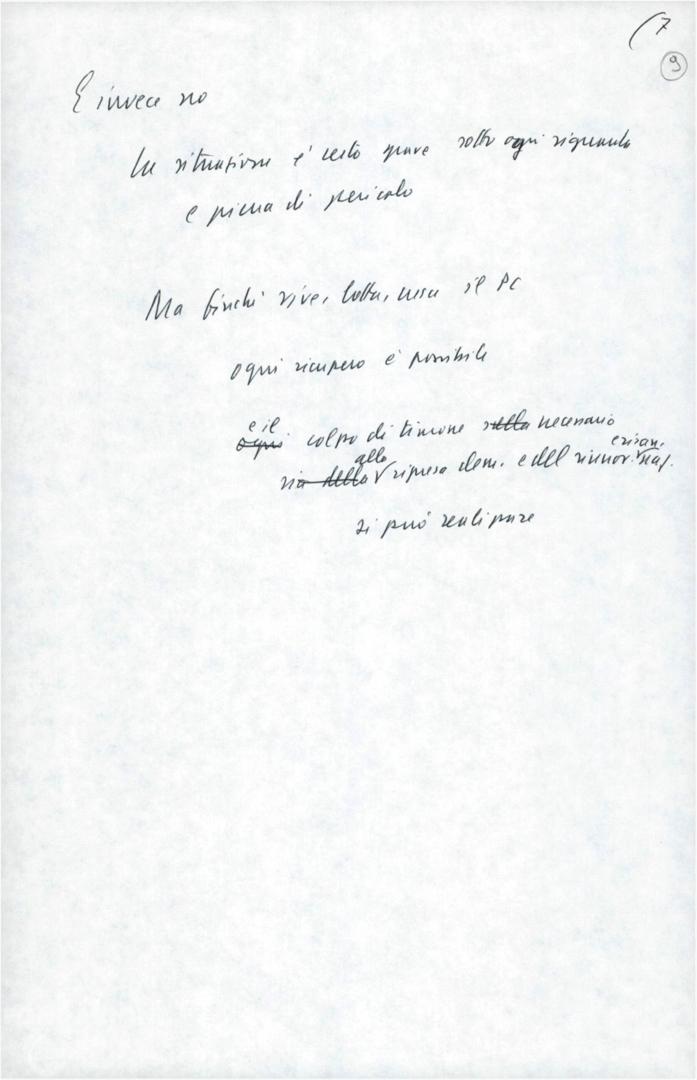 (7
9
E invece no
La situazione e' certo grave sotto ogni riguardo
e piena di pericolo
Ma finché vive, lotta, cresce il PC
ogni recupero è possibile
e il
ogni colpo di timone nella necessario
alla e risan.
sia della ripresa dem. e del rinnov. naz.
si può realizzare